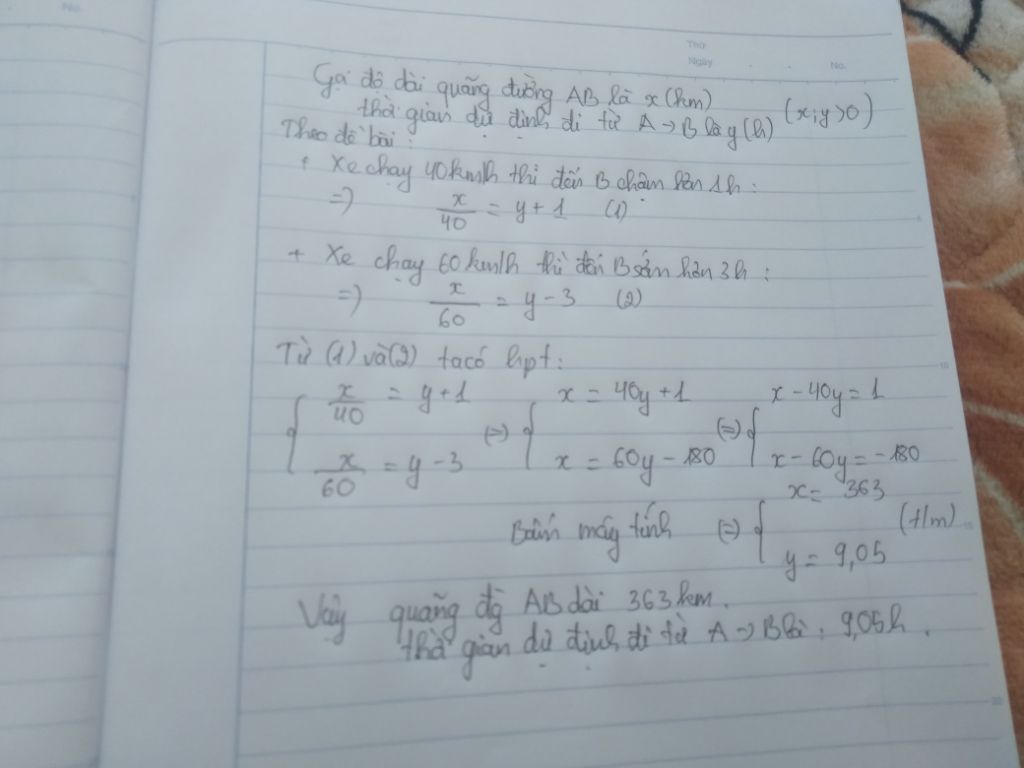 No.
Thứ
Ngày . . No.
Gọi độ dài quãng đường AB là x (km)
thời gian dự định đi từ A → B là y (h) (x; y > 0)
Theo đề bài :
+ Xe chạy 40km/h thì đến B chậm hơn 1h :
=> x/40 = y + 1 (1)
+ Xe chạy 60km/h thì đến B sớm hơn 3h :
=> x/60 = y - 3 (2)
Từ (1) và (2) ta có hpt :
{ x/40 = y + 1 (=) { x = 40y + 1 (=) { x - 40y = 1
x/60 = y - 3 x = 60y - 180 x - 60y = - 180
Bấm máy tính (=) { x = 363
y = 9,05 (t/m)
Vậy quãng đg AB dài 363 km.
thời gian dự định đi từ A → B là : 9,05h .